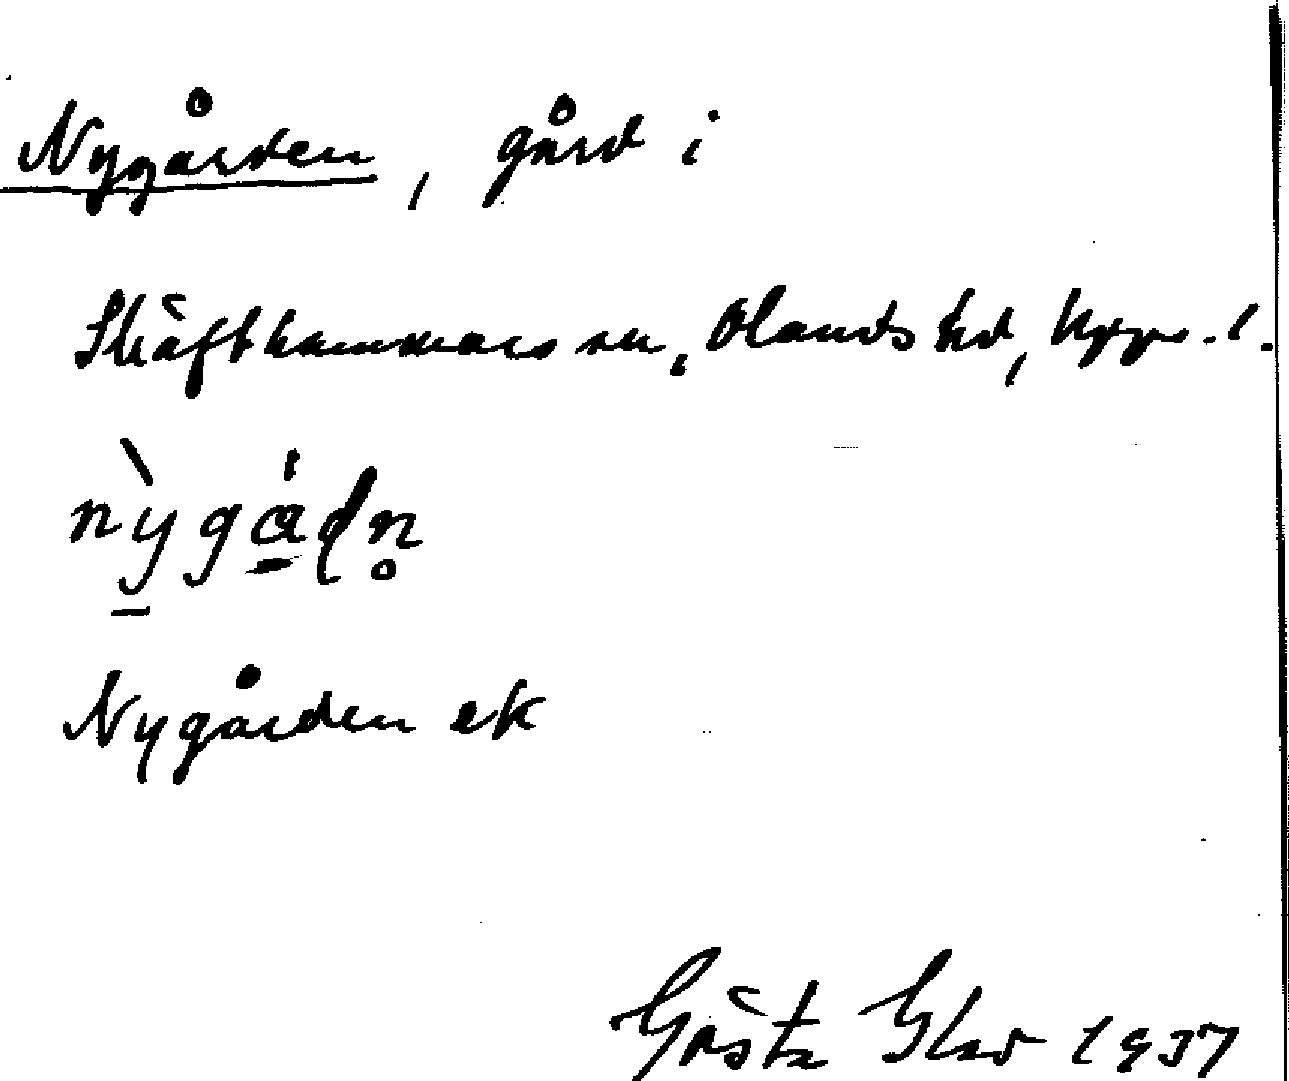 Nygården, gård i
Skäfthammars sn, Olands hd, Upps. l.
nỳ̠gá̠ḍn̥
Nygården ek
Gösta Glad 1937